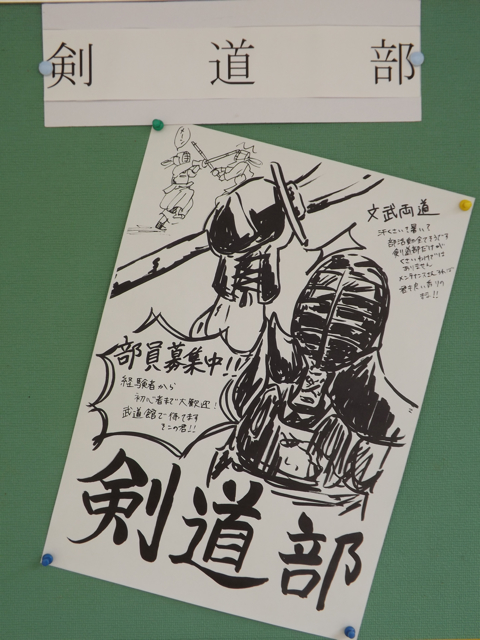 剣道部
文武両道
汗くさいて暑いて
部活動全てそうです
剣道部だけが
くさいわけでは
ありません
メンテナンスさえすれば
部員募集中!!
経験者から
初心者まで大歓迎!
武道館で待てます
そこの君!!
剣道部